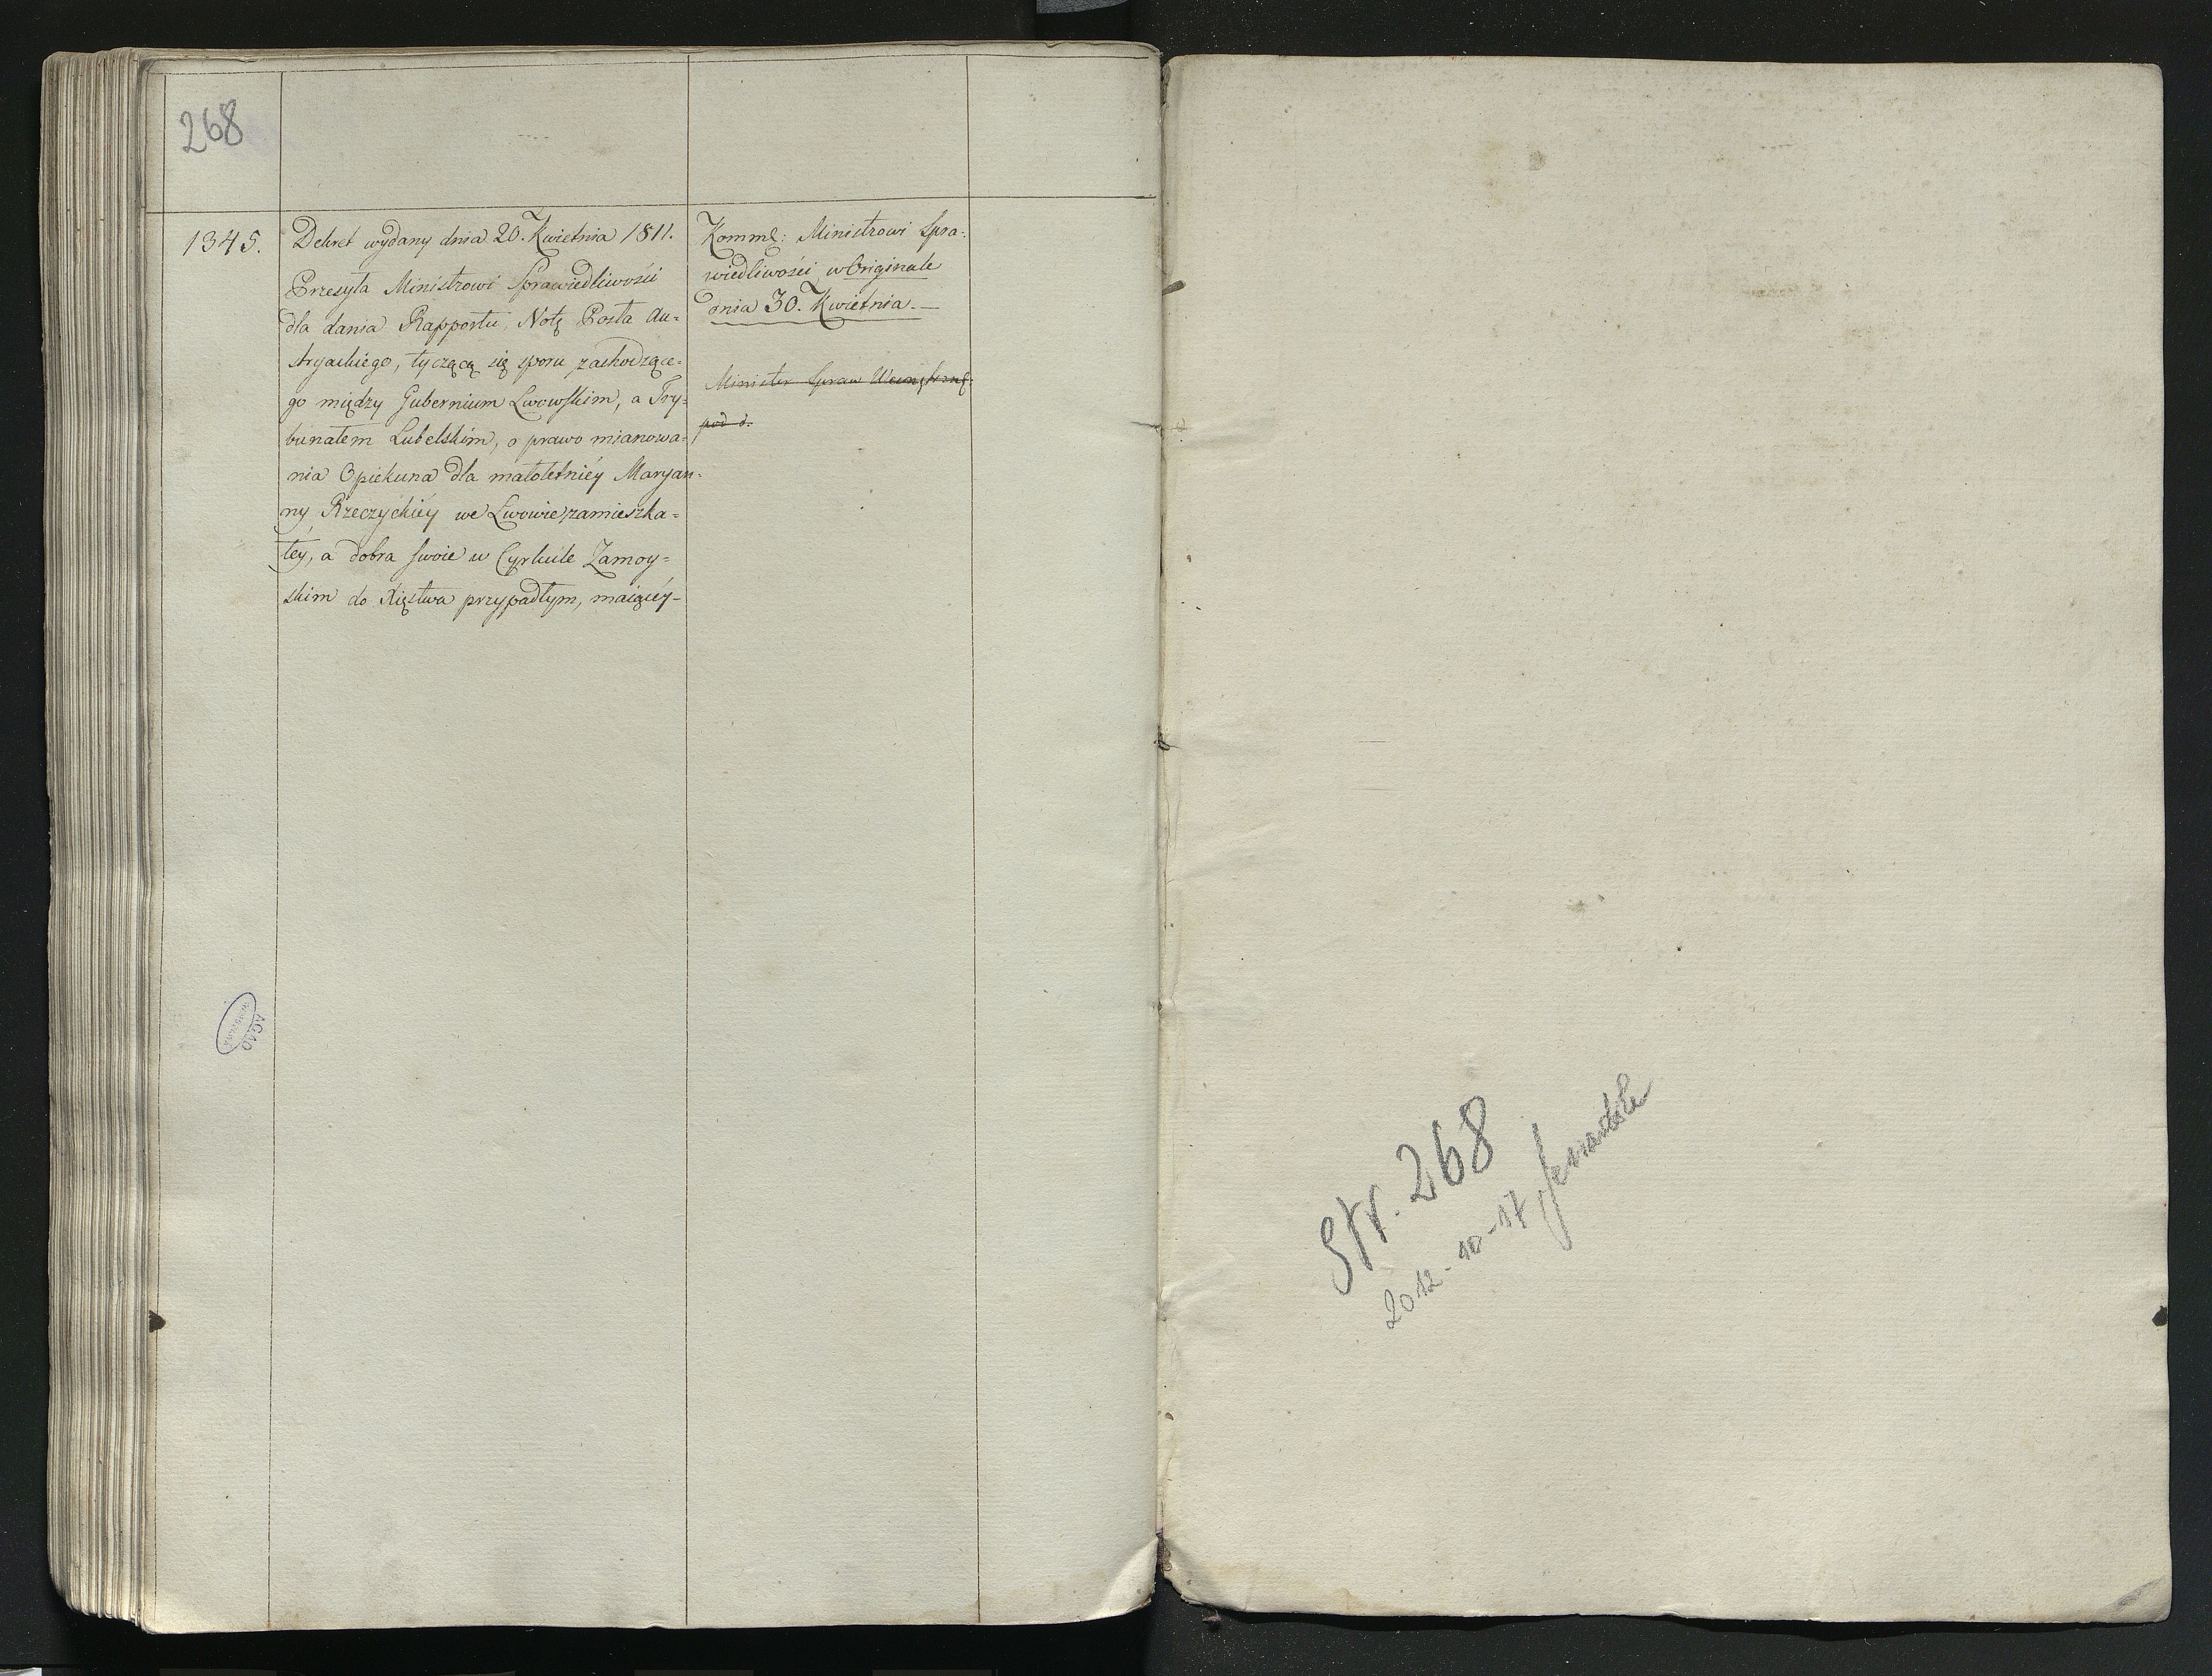 268
1345.
Dekret wydany dnia 20. Kwietnia 1811.
Przesyła Ministrowi Sprawiedliwości
dla dania Rapportu, Notę Posła Au=
stryackiego, tyczącą się sporu zachodzące=
go między Gubernium Lwowskim, a Try=
bunałem Lubelskim, o prawo mianowa=
nia Opiekuna dla małoletniéy Maryan=
ny Rzeczyckiéy we Lwowie zamieszka=
łey, a dobra swoie w Cyrkule Zamoy=
skim do Xięstwa przypadłym, maiącéy-
Kommę: Ministrowi Spra=
wiedliwości w Originale
dnia 30. Kwietnia.—
Minister Spraw Wewnętrznę:
pod d.
AGAD
Str. 268
2012-10-17